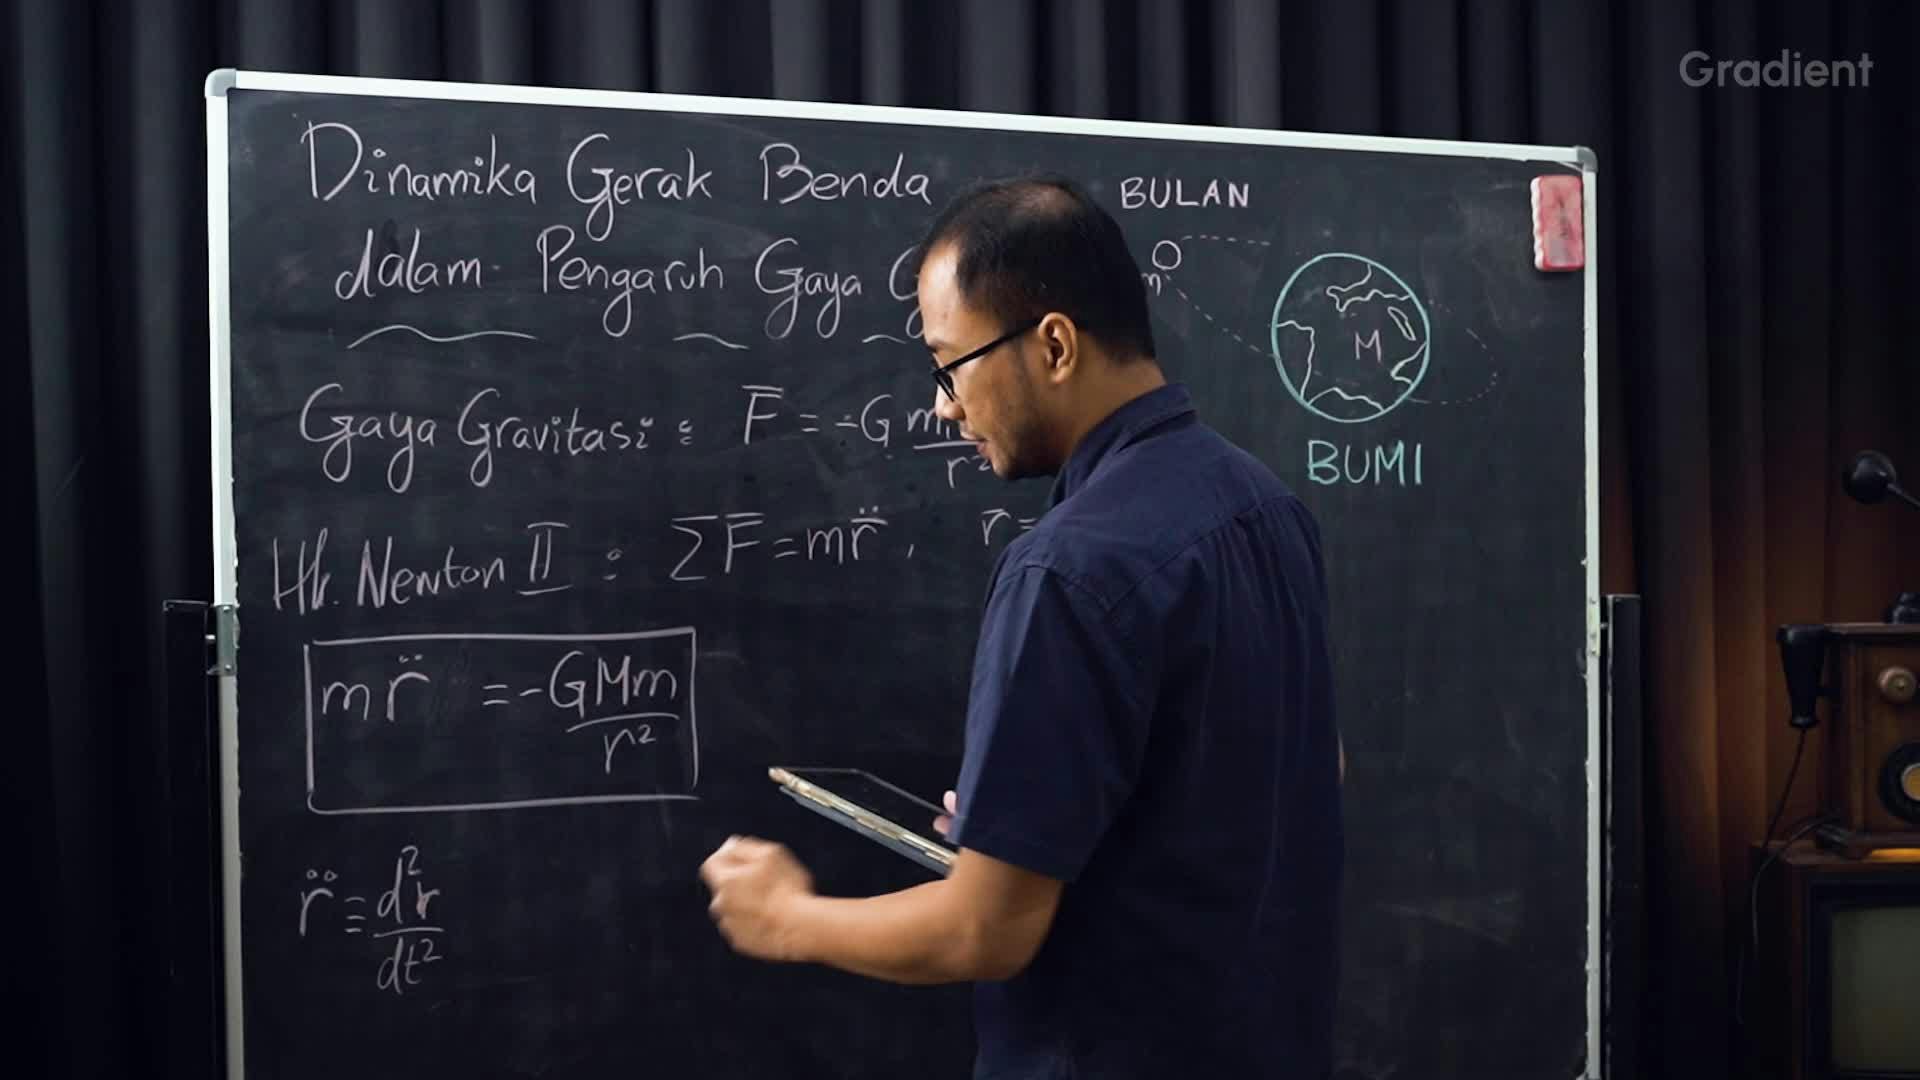 Gradient
Dinamika Gerak Benda
dalam Pengaruh Gaya
BULAN
m
M
BUMI
Gaya Gravitasi : F̅ = -G m / r²
Hk. Newton II : ΣF̅ = m r̅̈ , r̅ =
m r̈ = -GMm / r²
r̈ ≡ d²r / dt²